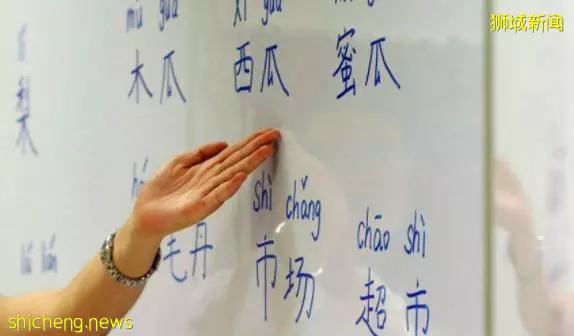 狮城新闻
mù guā xī guā
梨 木瓜 西瓜 蜜瓜
shì chǎng chāo shì
毛丹 市场 超市
shicheng.news